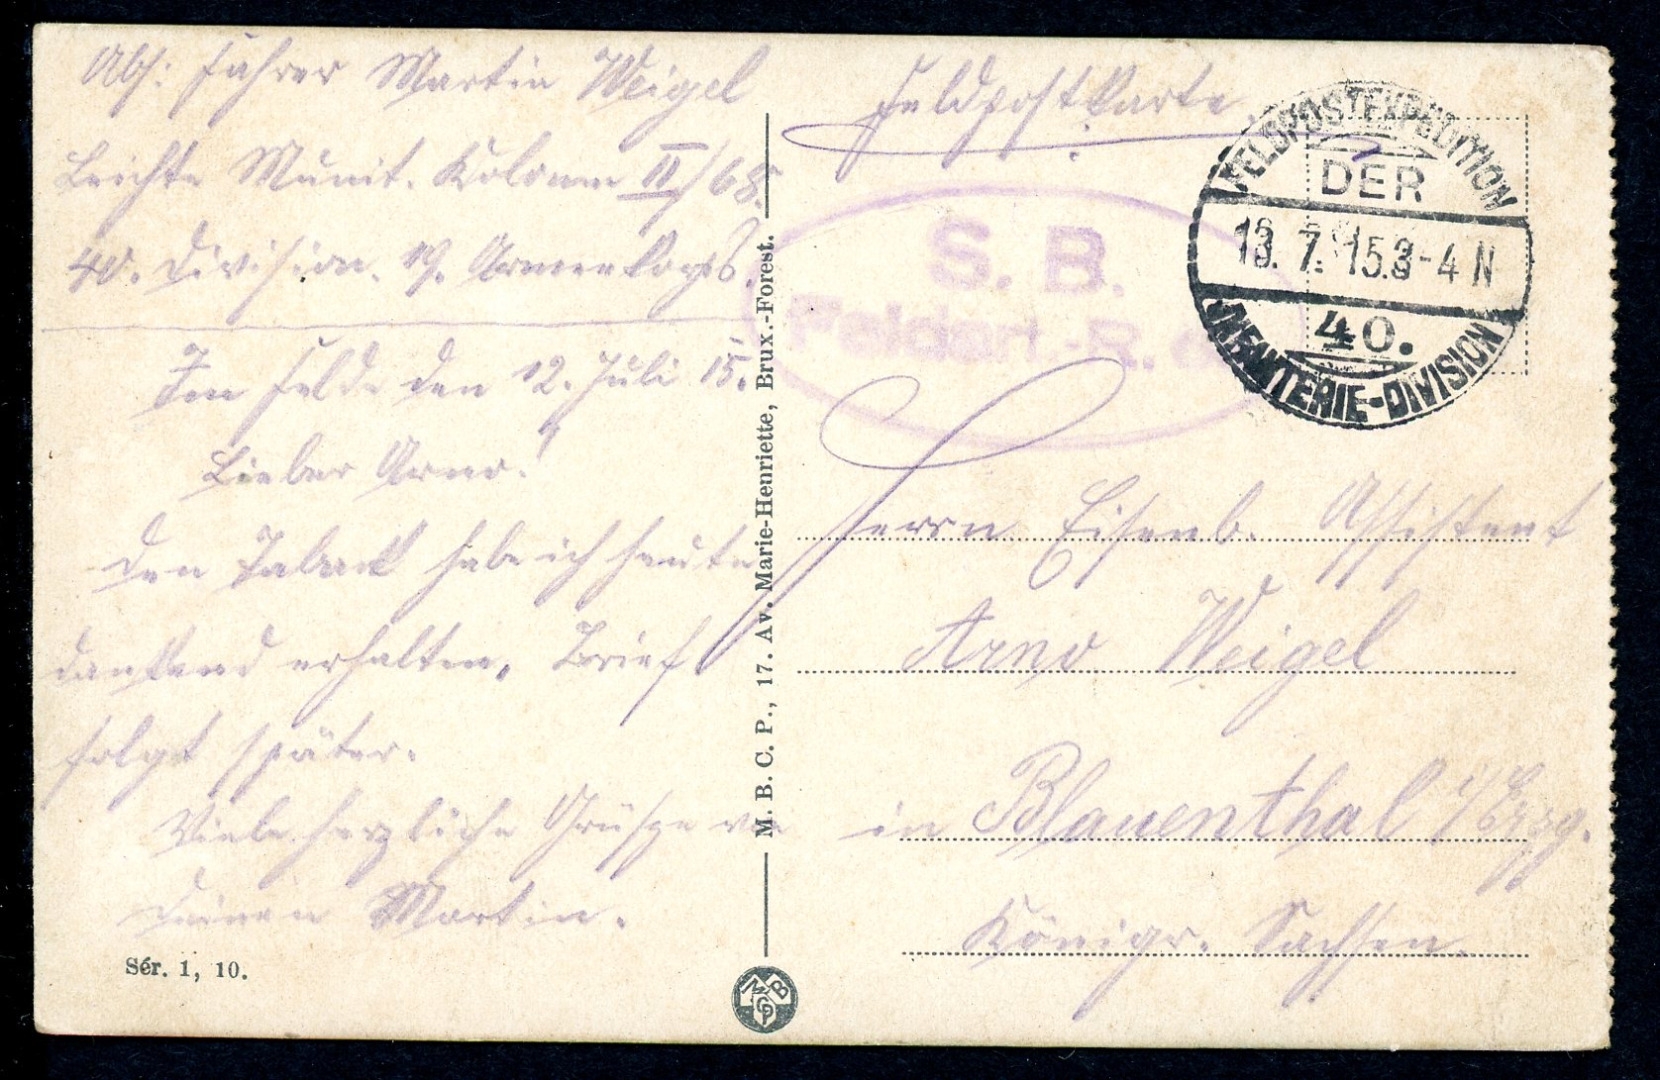 Abs: Fahrer Martin Weigel
Leichte Munit. Kolonne II/68.
40. Division. 19. Armeekorps.
Im Felde den 12. Juli 15.
Lieber Arno!
Den Taback habe ich heute
dankend erhalten, Brief
folgt später.
Viele herzliche Grüsse von
Deinen Martin.
Sér. 1, 10.
M. B. C. P., 17. Av. Marie-Henriette, Brux.-Forest.
MBCP
Feldpostkarte.
S. B.
Feldart.-R.
FELDPOSTEXPEDITION
DER
13. 7. 15. 3-4 N
40.
INFANTERIE-DIVISION
Herrn Eisenb. Assistent
Arno Weigel
in Blauenthal i/Erzg.
Königr. Sachsen.